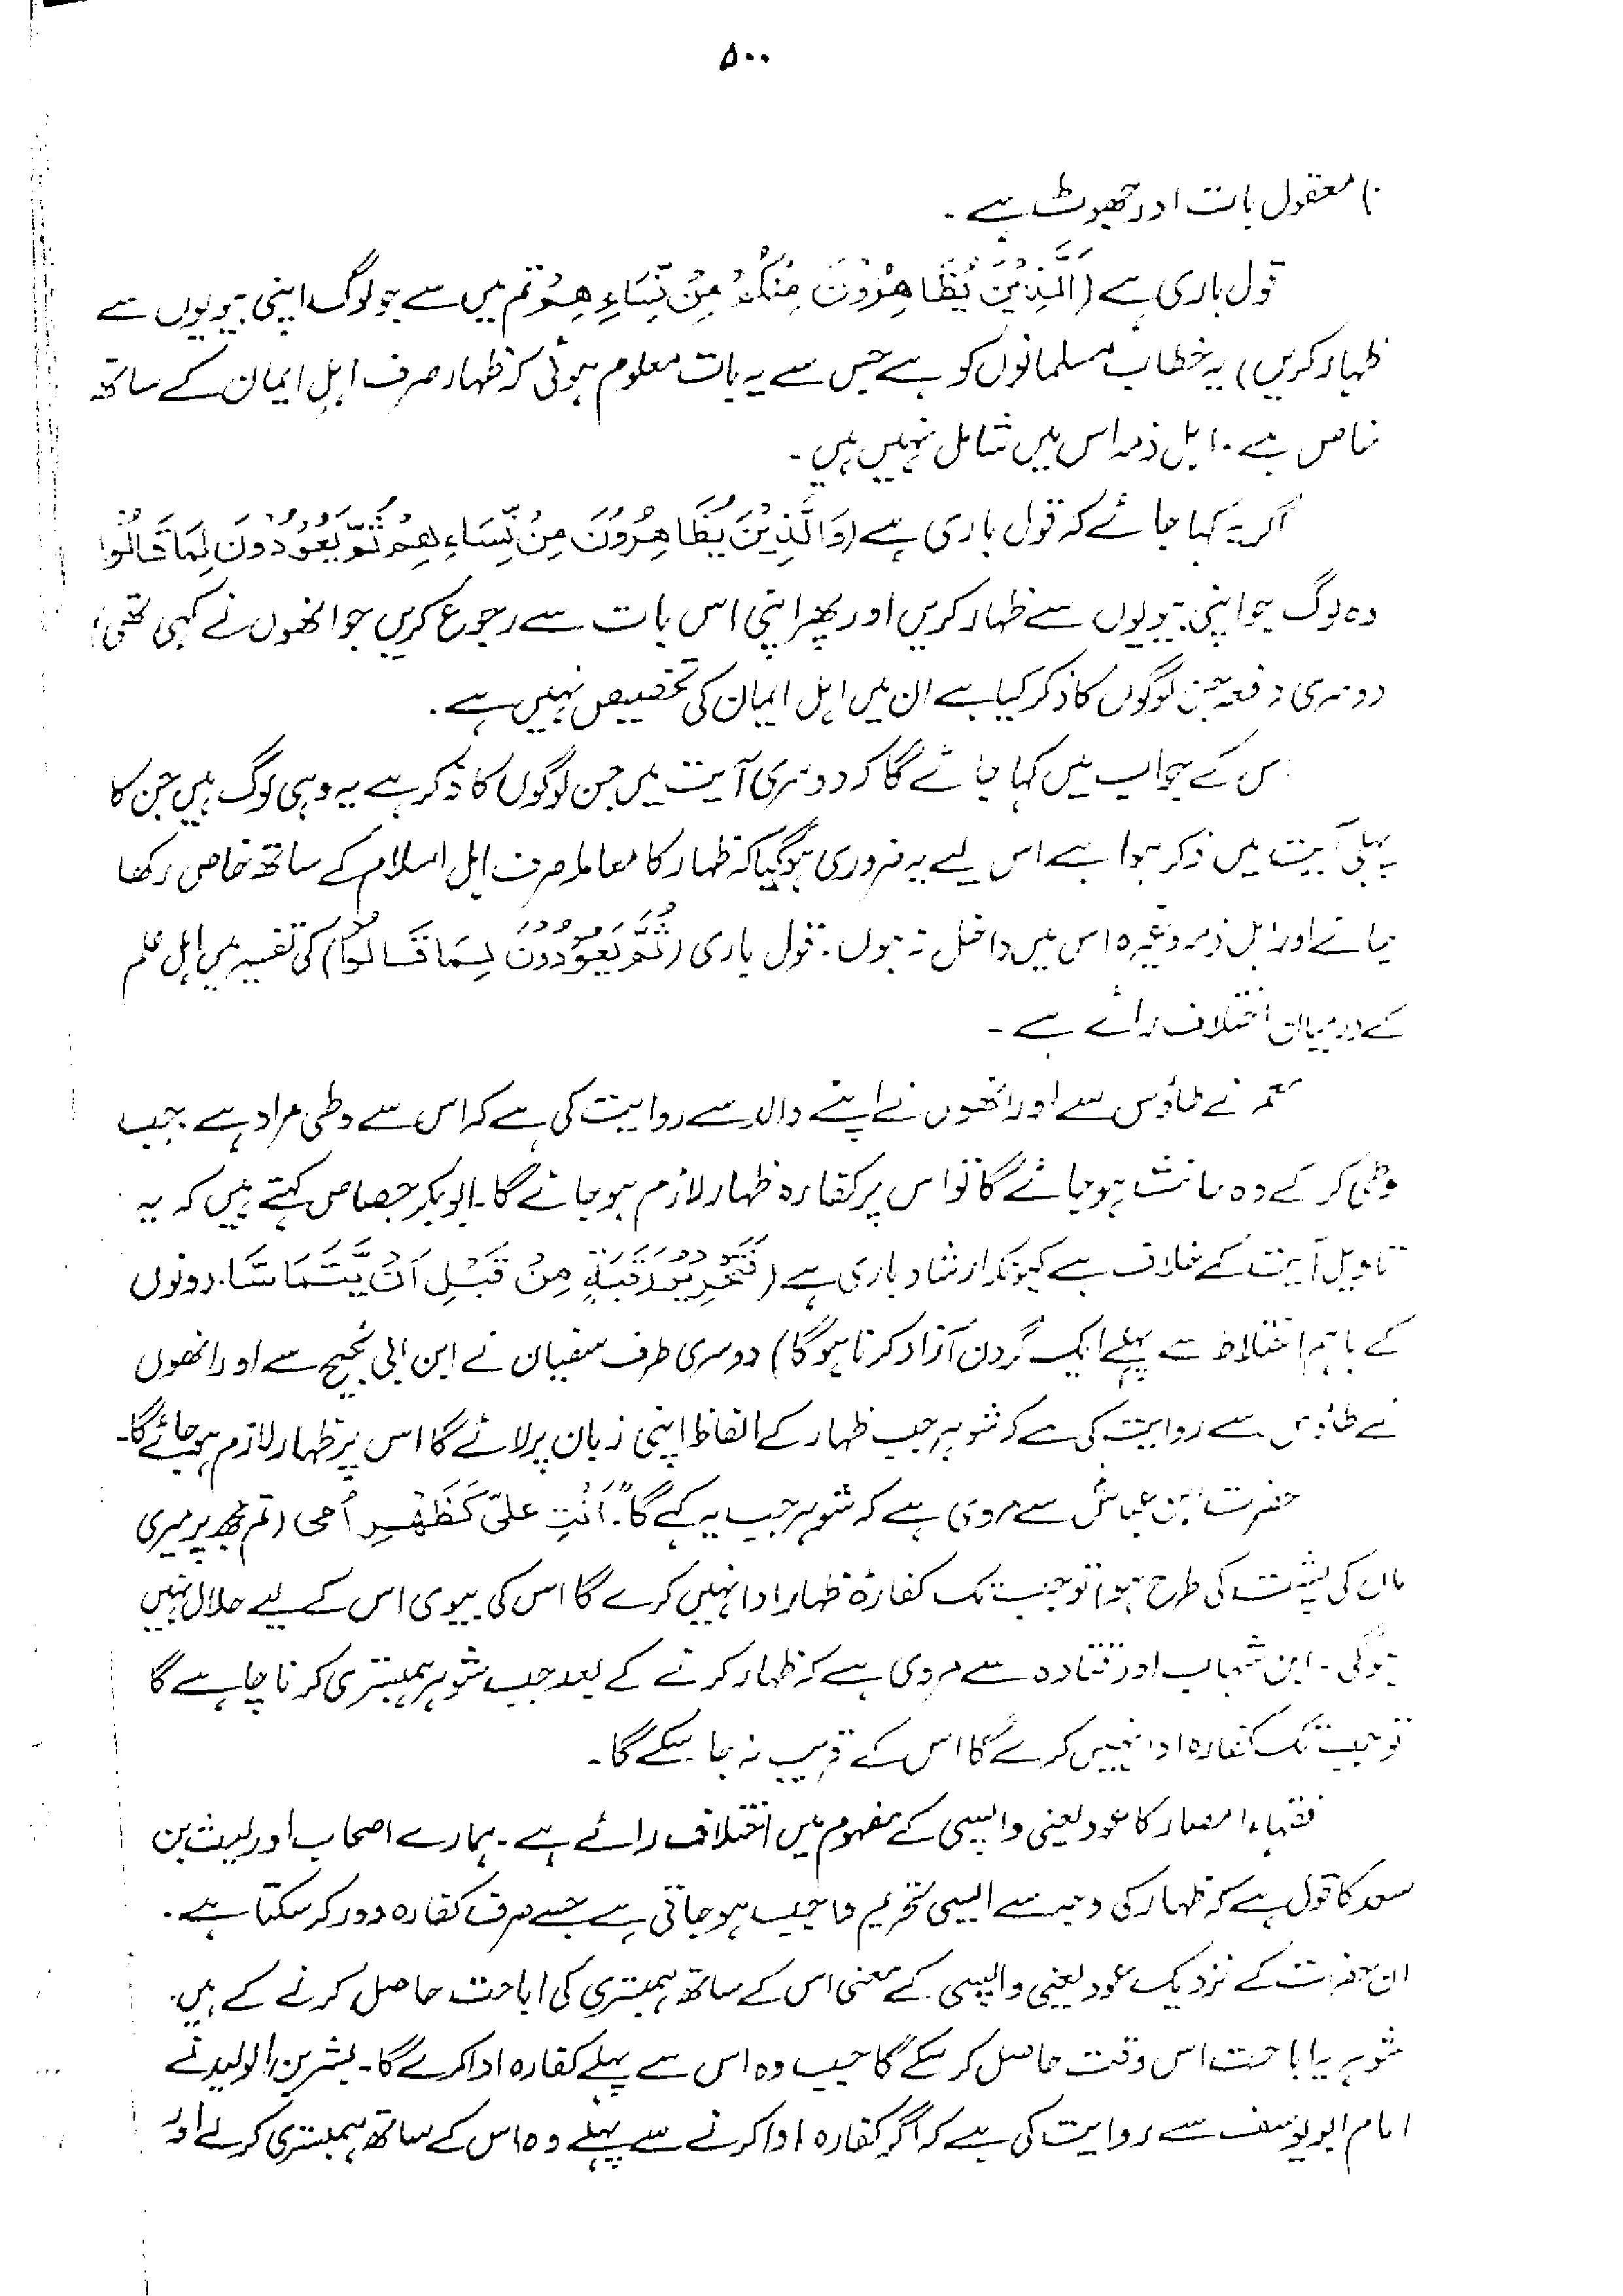 ۵۰۰
نا معقول بات اور جھوٹ ہے۔
قول باری ہے (اَلَّذِیْنَ یُظَاهِرُوْنَ مِنْكُمْ مِنْ نِّسَاءِهِمْ تم میں سے جو لوگ اپنی بیویوں سے
ظہار کریں) یہ خطاب مسلمانوں کو ہے جس سے یہ بات معلوم ہوئی کہ ظہار صرف اہل ایمان کے ساتھ
خاص ہے۔ اہل ذمہ اس میں شامل نہیں ہیں۔
اگر یہ کہا جائے کہ قول باری ہے (وَالَّذِیْنَ یُظَاهِرُوْنَ مِنْ نِّسَاءِهِمْ ثُمَّ یَعُوْدُوْنَ لِمَا قَالُوْا
وہ لوگ جو اپنی بیویوں سے ظہار کریں اور پھر اپنی اس بات سے رجوع کریں جو انھوں نے کہی تھی)
دوسری دفعہ جن لوگوں کا ذکر کیا ہے ان میں اہل ایمان کی تخصیص نہیں ہے۔
اس کے جواب میں کہا جائے گا کہ دوسری آیت میں جن لوگوں کا ذکر ہے یہ وہی لوگ ہیں جن کا
پہلی آیت میں ذکر ہوا ہے اس لیے یہ ضروری ہوگیا کہ ظہار کا معاملہ صرف اہل اسلام کے ساتھ خاص رکھا
جائے اور اہل ذمہ وغیرہ اس میں داخل نہ ہوں۔ قول باری (ثُمَّ یَعُوْدُوْنَ لِمَا قَالُوْا) کی تفسیر میں اہل علم
کے درمیان اختلاف رائے ہے۔
معمر نے طاؤس سے اور انھوں نے اپنے والد سے روایت کی ہے کہ اس سے وطی مراد ہے۔ جب
وطی کر کے وہ حانث ہوجائے گا تو اس پر کفارہ ظہار لازم ہوجائے گا۔ ابوبکر جصاص کہتے ہیں کہ یہ
تاویل آیت کے خلاف ہے کیونکہ ارشاد باری ہے (فَتَحْرِیْرُ رَقَبَةٍ مِنْ قَبْلِ اَنْ یَّتَمَاسَّا۔ دونوں
کے باہم اختلاط سے پہلے ایک گردن آزاد کرنا ہوگا) دوسری طرف سفیان نے ابن ابی نجیح سے اور انھوں
نے طاؤس سے روایت کی ہے کہ شوہر جب ظہار کے الفاظ اپنی زبان پر لائے گا اس پر ظہار لازم ہوجائے گا۔
حضرت ابن عباسؓ سے مروی ہے کہ شوہر جب یہ کہے گا۔ "اَنْتِ علیّ كَظَهْرِ اُمی (تم مجھ پر میری
ماں کی پشت کی طرح ہو) تو جب تک کفارۂ ظہار ادا نہیں کرے گا اس کی بیوی اس کے لیے حلال نہیں
ہوگی۔ ابن شہاب اور قتادہ سے مروی ہے کہ ظہار کرنے کے بعد جب شوہر ہمبستری کرنا چاہے گا
تو جب تک کفارہ ادا نہیں کرے گا اس کے قریب نہ جا سکے گا۔
فقہاء امصار کا عود یعنی واپسی کے مفہوم میں اختلاف رائے ہے۔ ہمارے اصحاب اور لیث بن
سعد کا قول ہے کہ ظہار کی وجہ سے ایسی تحریم واجب ہوجاتی ہے جسے صرف کفارہ دور کر سکتا ہے۔
ان حضرات کے نزدیک عود یعنی واپسی کے معنی اس کے ساتھ ہمبستری کی اباحت حاصل کرنے کے ہیں۔
شوہر یہ اباحت اس وقت حاصل کر سکے گا جب وہ اس سے پہلے کفارہ ادا کرے گا۔ بشر بن الولید نے
امام ابو یوسف سے روایت کی ہے کہ اگر کفارہ ادا کرنے سے پہلے وہ اس کے ساتھ ہمبستری کرلے اور